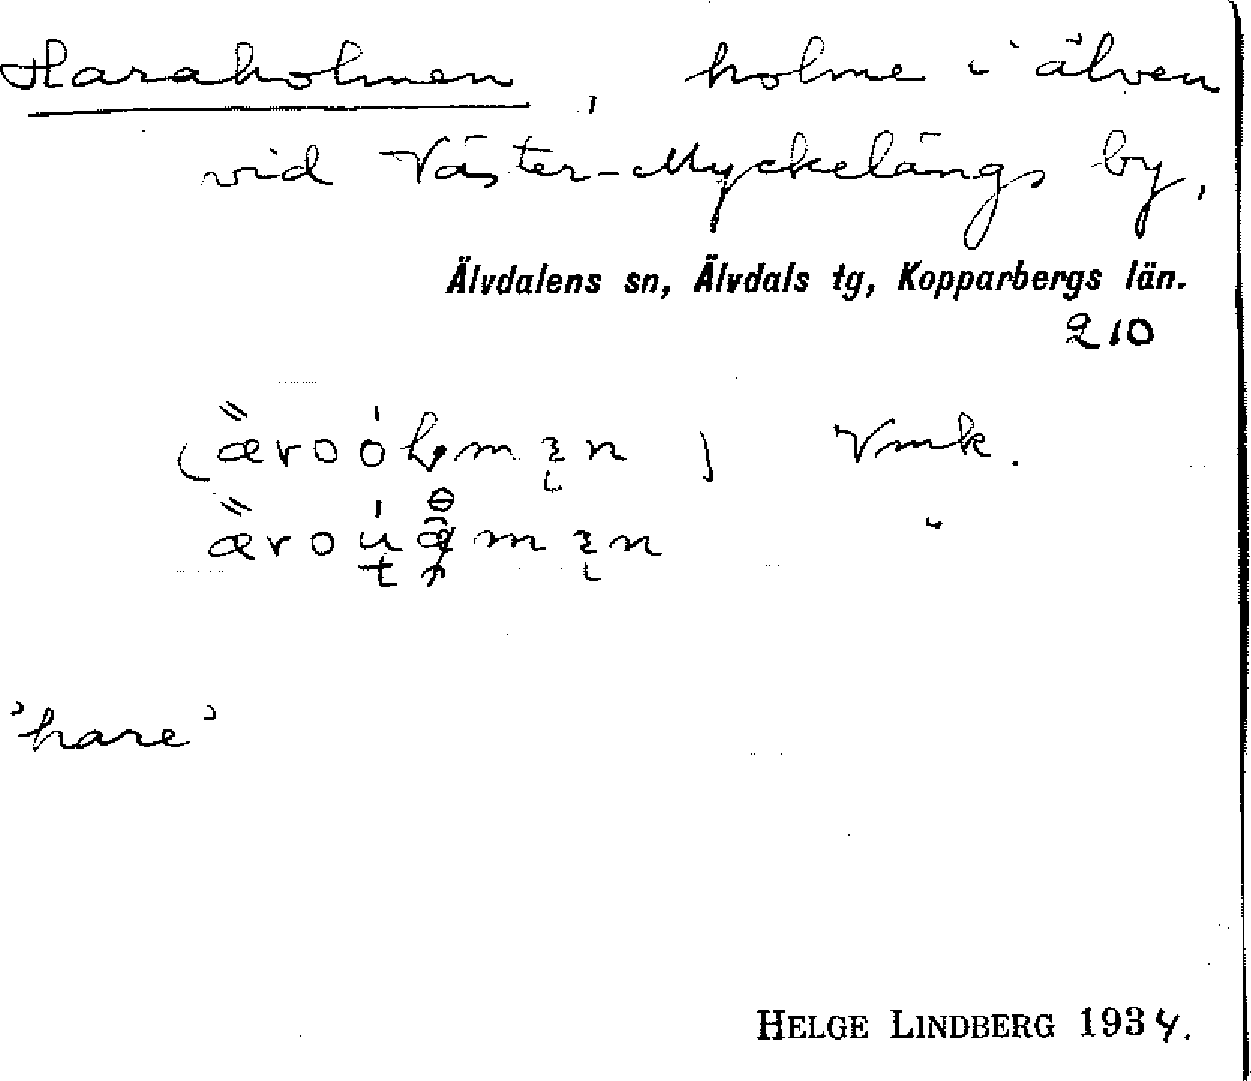 Haraholmen, holme i älven
vid Väster-Myckelängs by,
Älvdalens sn, Älvdals tg, Kopparbergs län.
210
Vmk.
"
'hare'
HELGE LINDBERG 1934.